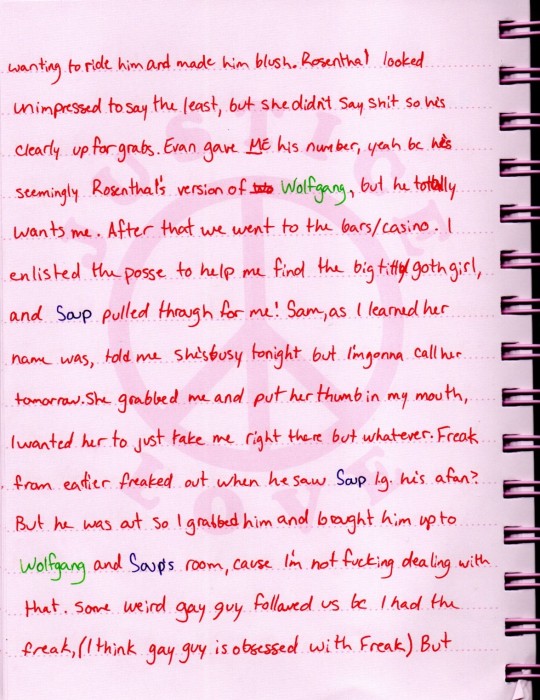 wanting to ride him and made him blush. Rosenthal looked
unimpressed to say the least, but she didn't say shit so he's
clearly up for grabs. Evan gave ME his number, yeah bc he's
seemingly Rosenthal's version of Wolfgang, but he totally
wants me. After that we went to the bars/casino. I
enlisted the posse to help me find the big titty goth girl,
and Soup pulled through for me! Sam, as I learned her
name was, told me she's busy tonight but I'm gonna call her
tomorrow. She grabbed me and put her thumb in my mouth,
I wanted her to just take me right there but whatever. Freak
from earlier freaked out when he saw Soup Ig. he's a fan?
But he was out so I grabbed him and bought him up to
Wolfgang and Soup's room, cause I'm not fucking dealing with
that. Some weird gay guy followed us bc I had the
freak, (I think gay guy is obsessed with Freak) But
JUSTICE
LOVE